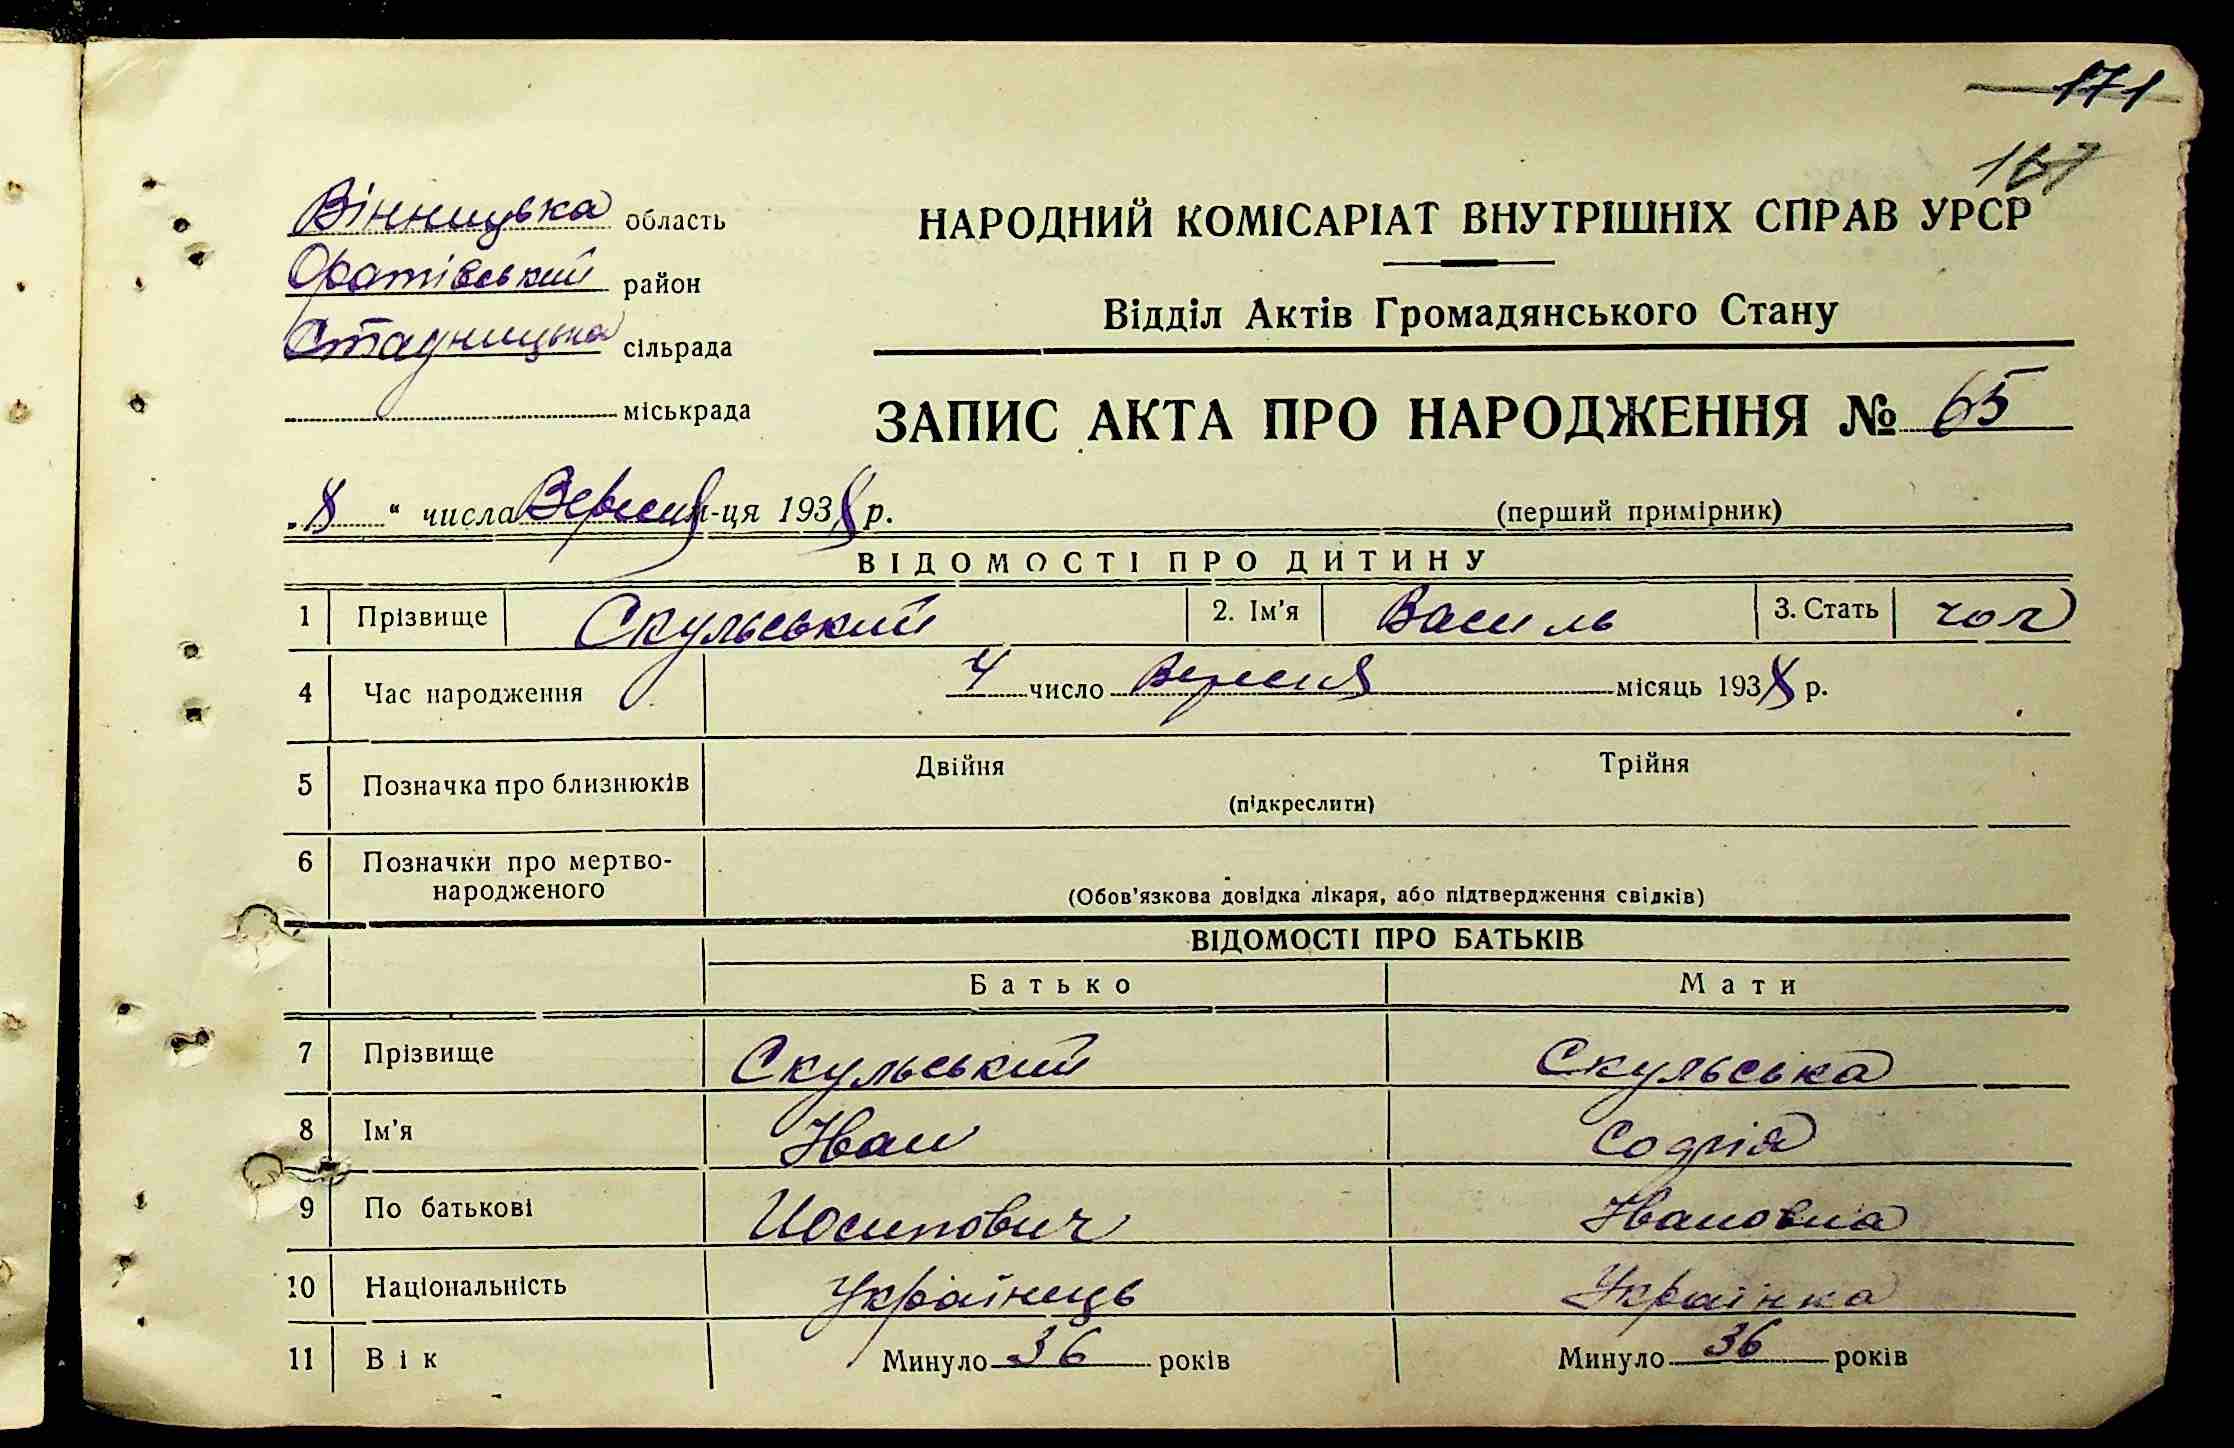 171
167
Вінницька область
Оратівський район
Стадницька сільрада
міськрада
НАРОДНИЙ КОМІСАРІАТ ВНУТРІШНІХ СПРАВ УРСР
Відділ Актів Громадянського Стану
ЗАПИС АКТА ПРО НАРОДЖЕННЯ № 65
„8“ числа Вересня м-ця 1938 р.
(перший примірник)
ВІДОМОСТІ ПРО ДИТИНУ
1 Прізвище Скульський 2. Ім'я Василь 3. Стать чол
4 Час народження 4 число Вересня місяць 1938 р.
5 Позначка про близнюків Двійня Трійня
(підкреслити)
6 Позначки про мертво-
народженого
(Обов'язкова довідка лікаря, або підтвердження свідків)
ВІДОМОСТІ ПРО БАТЬКІВ
Батько Мати
7 Прізвище Скульський Скульська
8 Ім'я Іван Софія
9 По батькові Иосипович Івановна
10 Національність Українець Українка
11 Вік Минуло 36 років Минуло 36 років